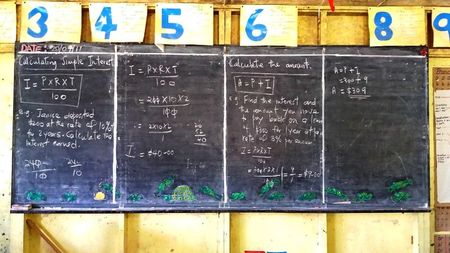 3 4 5 6 8 9
DATE:
Calculating Simple Interest
I = PxRxT
100
e.g. Janice deposited
$200 at the rate of 10%
for 2 years. Calculate the
interest earned.
10
10
I = PxRxT
100
= 200 x 10 x 2
100
= 2x10x2
I = $40.00
Calculate the amount.
A = P + I
e.g. Find the interest and
the amount
to pay back on a loan
of $300 for 1 year at
rate of 3% per annum
I = PxRxT
100
= 300x3x1
= 9
1
= $9.00
A = P + I
= 300 + 9
A = $309